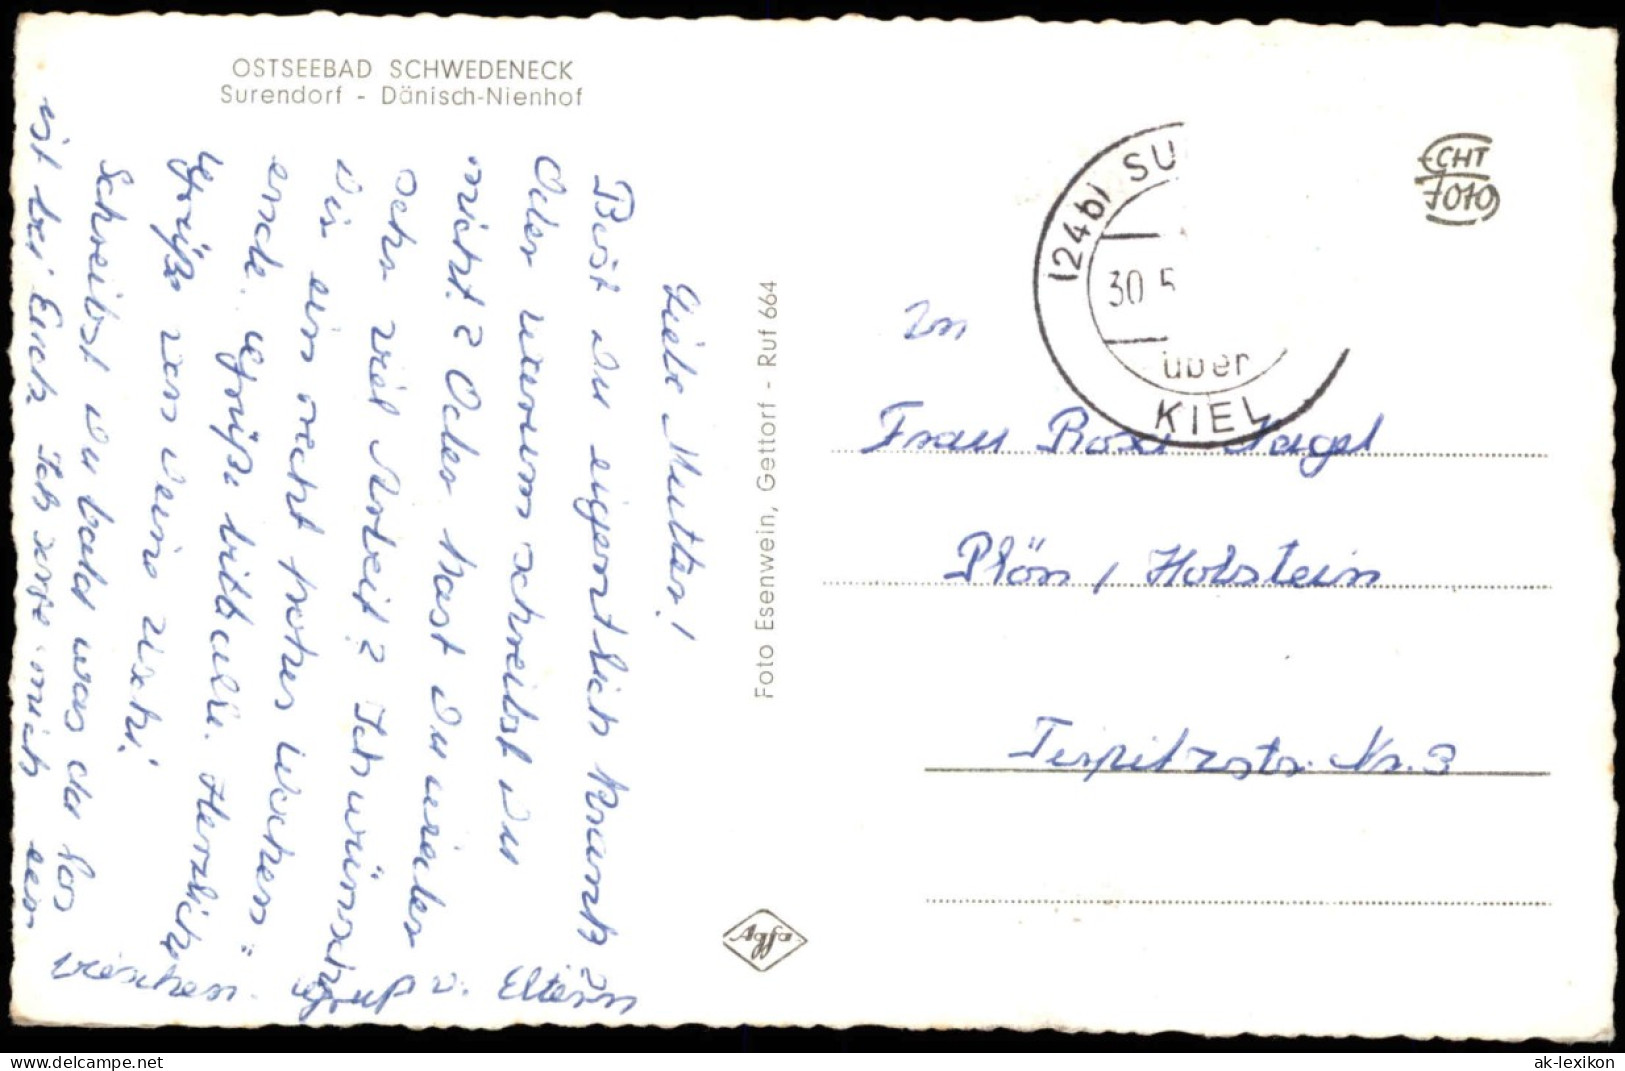 OSTSEEBAD SCHWEDENECK
Surendorf - Dänisch-Nienhof
Liebe Mutter!
Bist du eigentlich krank?
Oder warum schreibst du
nicht? Oder hast du wieder
sehr viel Arbeit? Ich wünsche
dir ein recht frohes Wochen=
ende. Grüße bitte alle. Herzliche
Grüße von deine Uschi.
Schreibst du bald was da los
ist bei Euch. Ich sorge mich ein
bischen. Gruß a. Eltern
Foto Esenwein, Gettorf - Ruf 664
Agfa
ECHT
FOTO
(24b) SU
30.5
über
KIEL
An
Frau Rosa Nagel
Plön, Holstein
Tirpitzstr. Nr. 3
www.delcampe.net
ak-lexikon